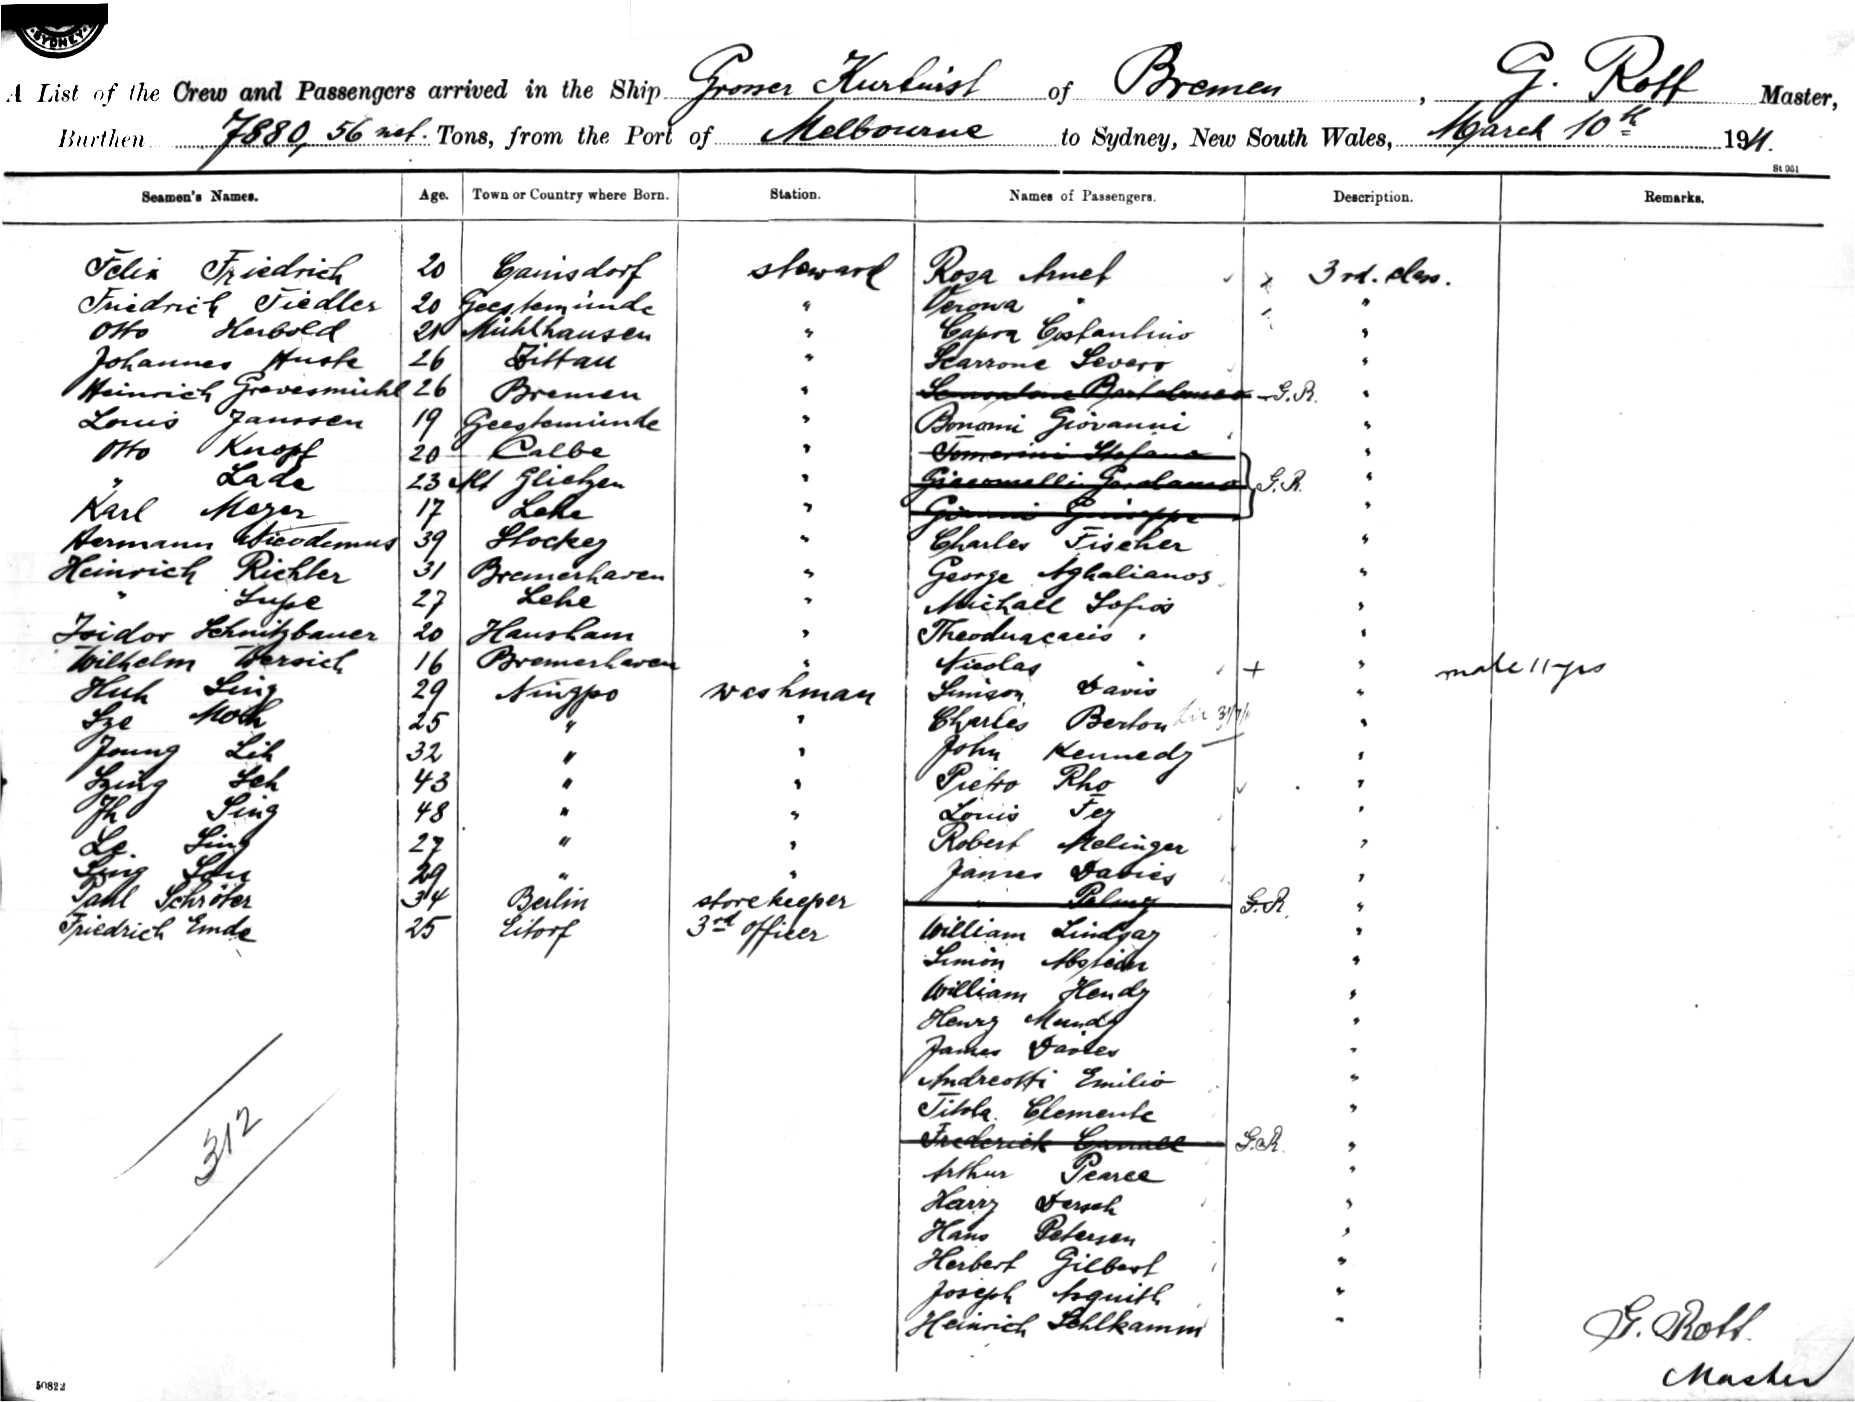 SYDNEY
A List of the Crew and Passengers arrived in the Ship Grosser Kurfürst of Bremen, G. Rott Master,
Burthen 7880,56 net. Tons, from the Port of Melbourne to Sydney, New South Wales, March 10th 1911.
St 051
Seamen's Names. Age. Town or Country where Born. Station. Names of Passengers. Description. Remarks.
Felix Friedrich 20 Cainsdorf steward Rosa Arnet x 3rd. class.
Friedrich Fiedler 20 Geestemünde " Verona " "
Otto Herbold 21 Mühlhausen " Capra Costantino "
Johannes Huste 26 Zittau " Scarrone Severo "
Heinrich Grevesmühl 26 Bremen " Bartolomeo G.R. "
Louis Janssen 19 Geestemünde " Bonomi Giovanni "
Otto Knopf 20 Calbe " Tomerini Stefano "
" Lade 23 Alt Glietzen " Giacomelli G.R. "
Karl Meyer 17 Lehe " Giuseppe "
Hermann Nicodemus 39 Stockey " Charles Fischer "
Heinrich Richter 31 Bremerhaven " George Aghalianos "
" Lupe 27 Lehe " Michael Sofios "
Isidor Schnitzbauer 20 Hausham " "
Wilhelm Wersich 16 Bremerhaven " Nicolas " + " male 11 yrs
Huh Sing 29 Ningpo washman Simson Davis "
Sze Moth 25 " " Charles Berton "
Joung Lih 32 " " John Kennedy "
Szing Seh 43 " " Pietro Rho "
Jh Sing 48 " " Louis Fey "
Le. Sing 27 " " Robert Melinger "
Sing 29 " " James Davies "
Paul Schröter 34 Berlin storekeeper " G.R. "
Friedrich Emde 25 Eitorf 3rd officer William Lindsay "
Simon "
William Hendy "
Henry Mundy "
James Davies "
Andreotti Emilio "
Titola Clemente "
Frederick G.R. "
Arthur Pearce "
Harry Dersch "
Hans Petersen "
Herbert Gilbert "
Joseph Asquith "
Heinrich Sehlkamm "
312
G. Rott.
Master
50822